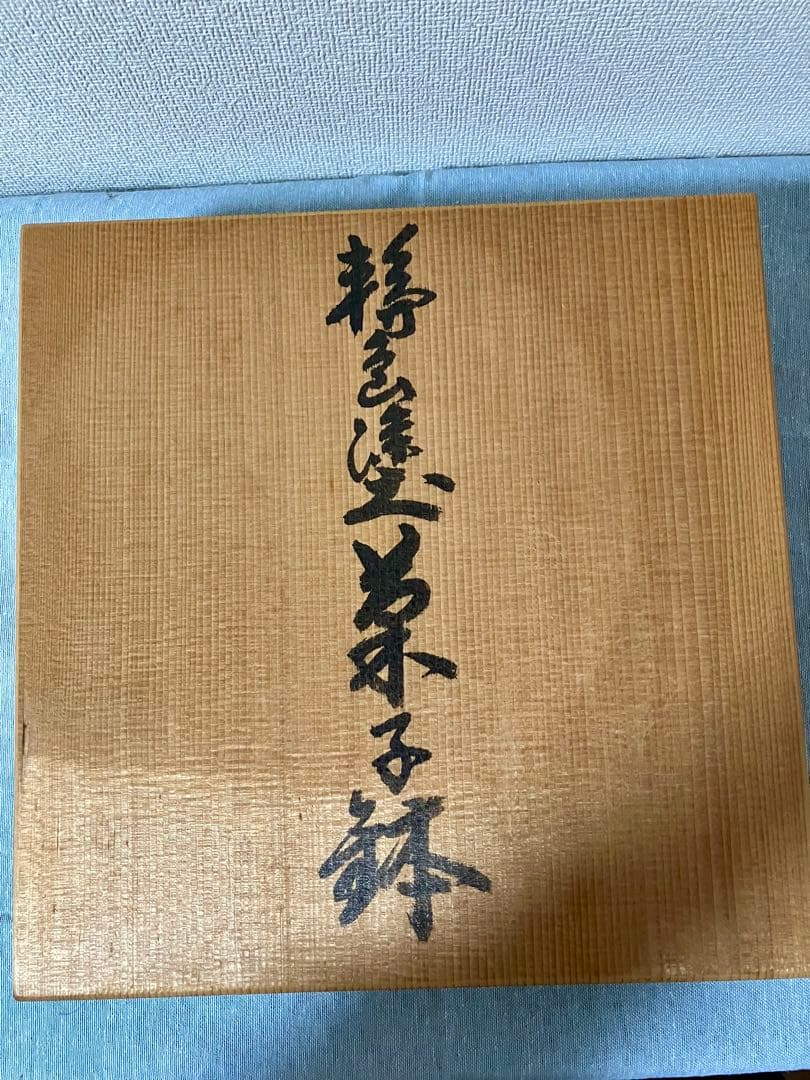 静色塗菓子鉢